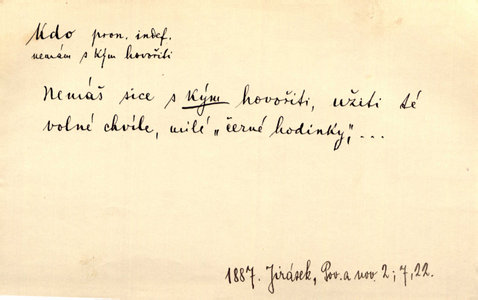 Kdo pron. indef.
nemám s kým hovořiti
Nemáš sice s kým hovořiti, užiti té
volné chvíle, milé „černé hodinky", ...
1887. Jirásek, Pov. a nov. 2; 7, 22.